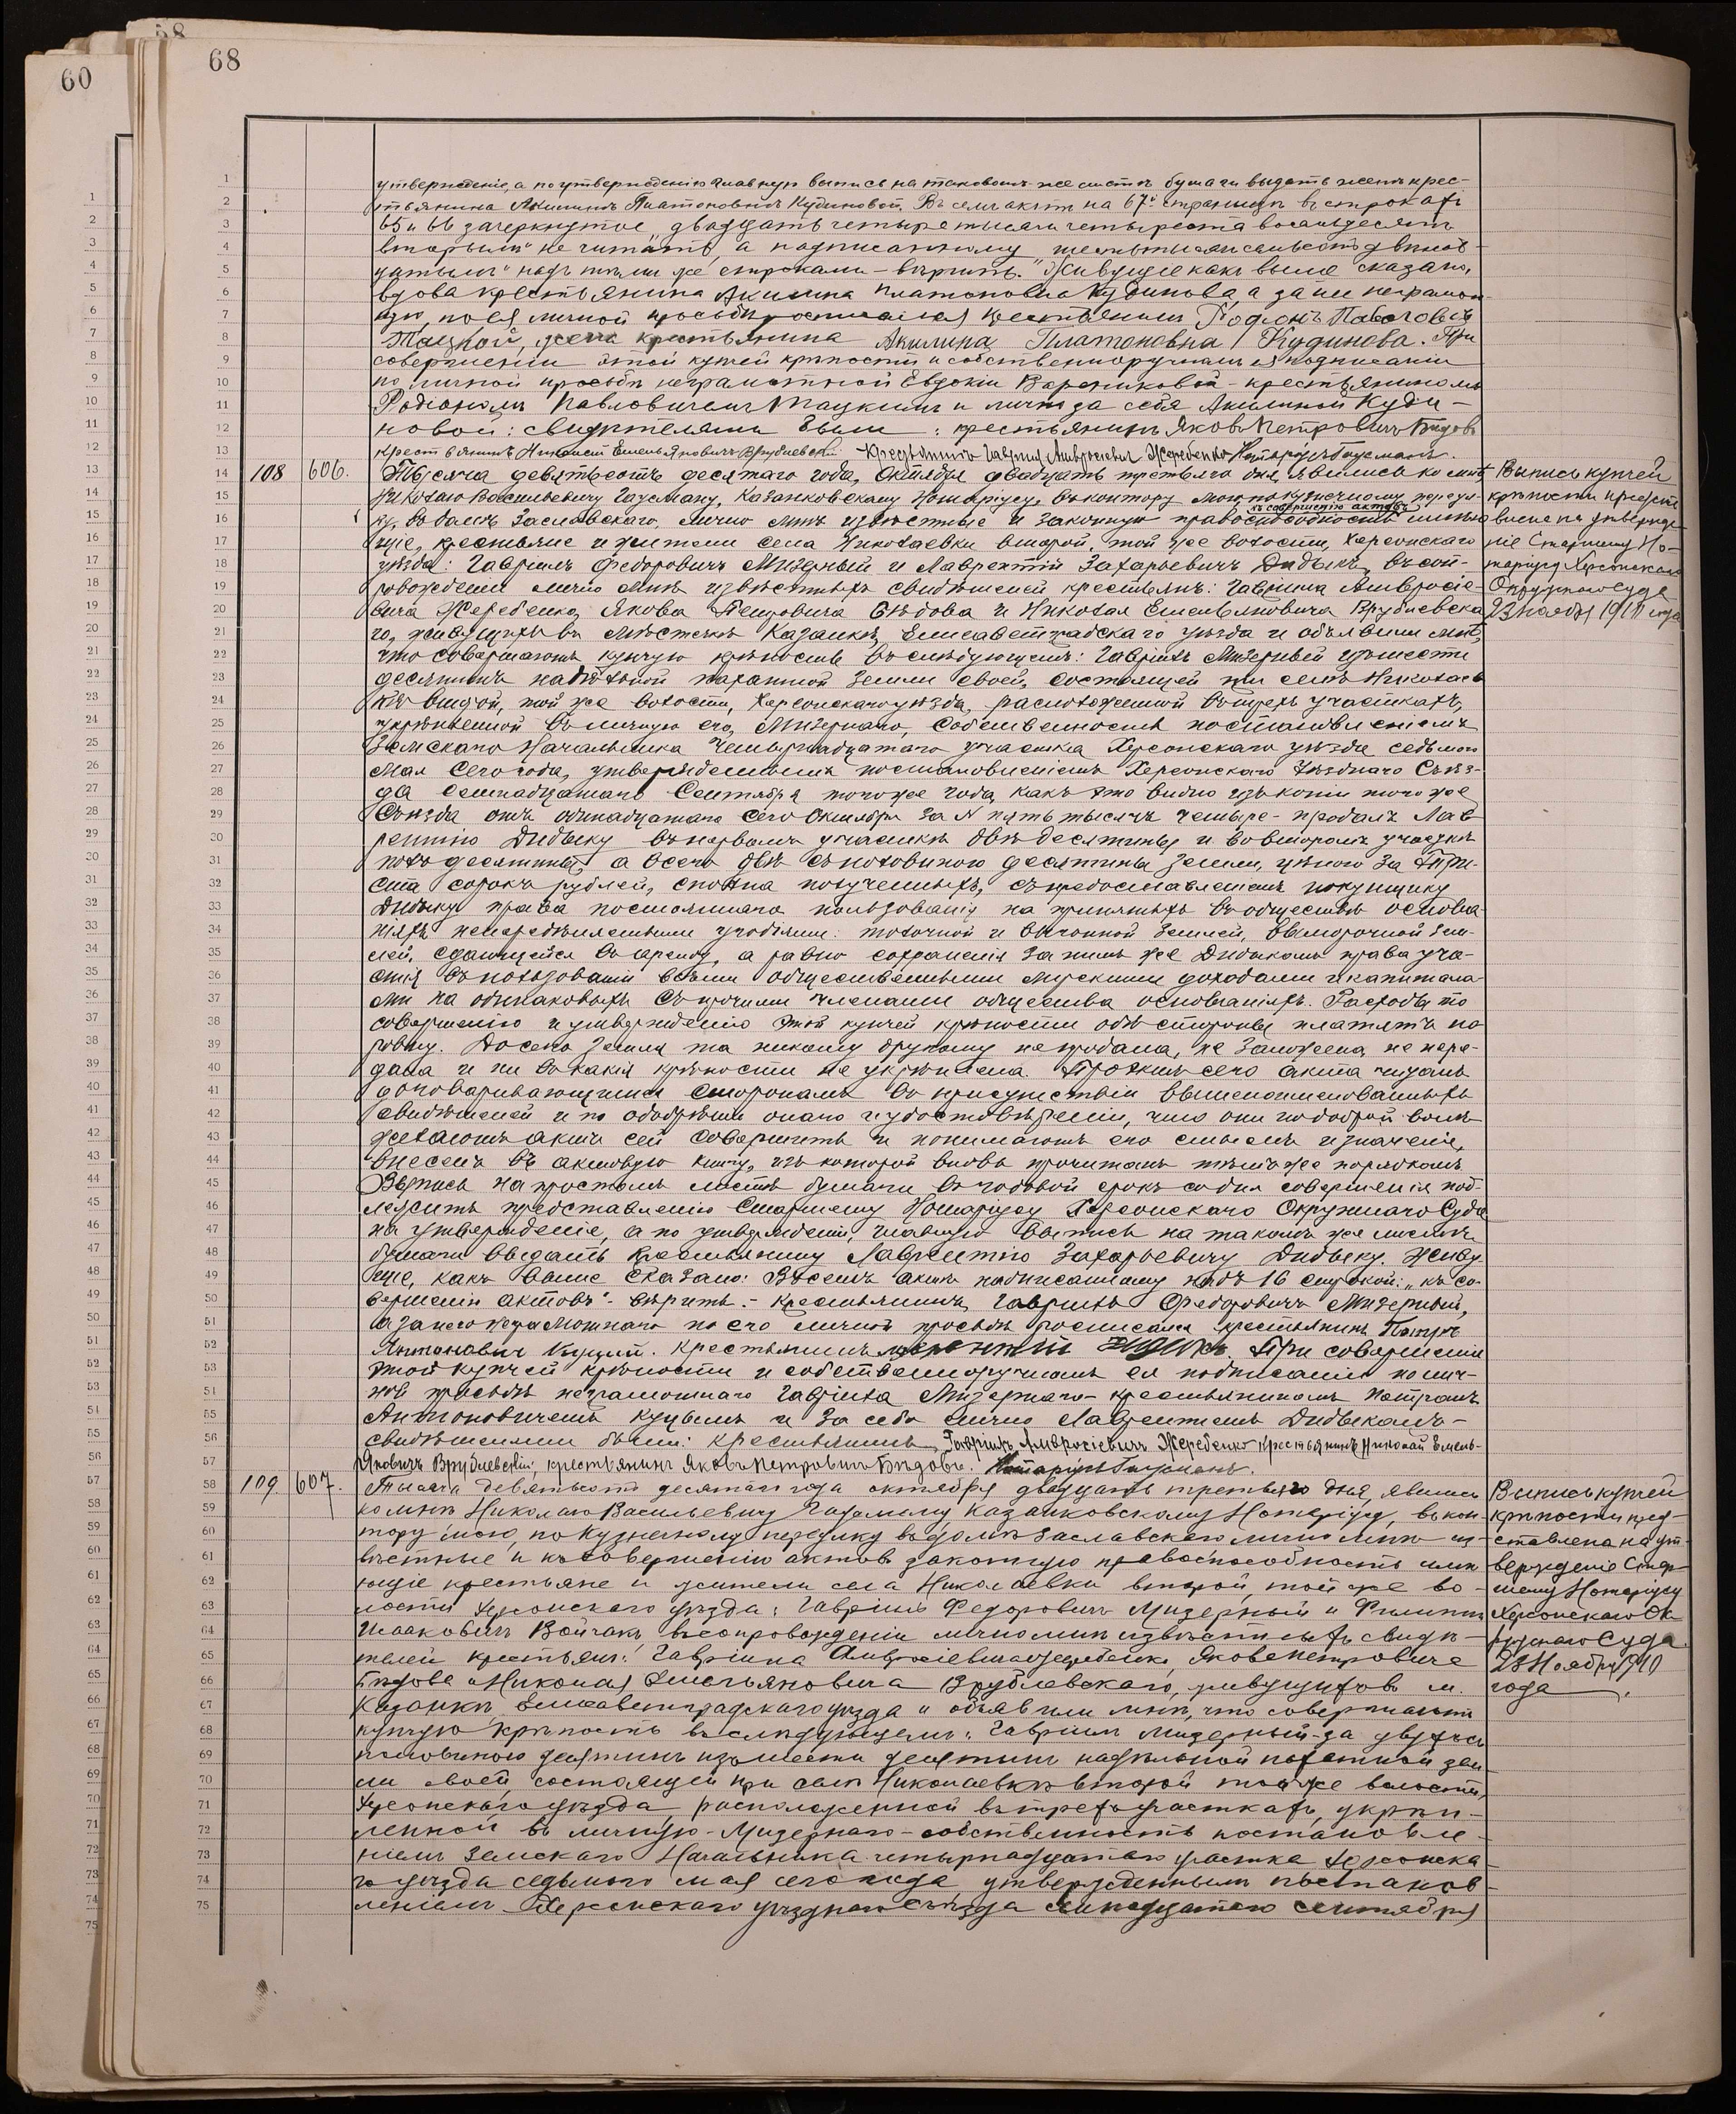 58
60
68
утвержденіе, а по утвержденію главную выпись на таковомъ же листѣ бумаги выдать женѣ крес-
тьянина Акилинѣ Платоновнѣ Кудиновой. Въ семъ актѣ на 67й страницѣ въ строкахъ
65 и 66 зачеркнутое „двадцать четыре тысячи четыреста восемьдесятъ
вторымъ" не читать, а надписанному
надъ тѣми же строками – вѣрить." Живущіе какъ выше сказано,
вдова крестьянина Акилина Платоновна Кудинова, а за нея неграмот-
ную, по ея личной просьбѣ росписался крестьянинъ Родіонъ Павловичъ
Тацкой, жена крестьянина Акилина Платоновна Кудинова. При
совершеніи этой купчей крѣпости и собственноручномъ ея подписаніи
по личной просьбѣ неграмотной Евдокіи Варениковой – крестьяниномъ
Родіономъ Павловичемъ Тацкимъ и лично за себя Акилиной Куди-
новой: свидѣтелями были: крестьянинъ Яковъ Петровичъ Бѣдовъ
крестьянинъ Николай Емельяновичъ Врублевскій. Крестьянинъ Гавріилъ Амвросіевичъ Жеребенко Нотаріусъ Гаусманъ.
108 606. Тысяча девятьсотъ десятаго года, Октября двадцать третьяго дня, явились ко мнѣ,
Николаю Васильевичу Гаусману, Казанковскому Нотаріусу, въ контору мою по Кузнечному переул-
къ совершенію актовъ
ку, въ домѣ Заславскаго, лично мнѣ извѣстные и законную правоспособность имѣю-
щіе, крестьяне и жители села Николаевки второй, той же волости, Херсонскаго
уѣзда: Гавріилъ Федоровичъ Мизерный и Лаврентій Захарьевичъ Дидыкъ, въ соп-
ровожденіи лично мнѣ извѣстныхъ свидѣтелей крестьянъ: Гавріила Амвросіе-
вича Жеребенко, Якова Петровича Бѣдова и Николая Емельяновича Врублевска-
го, живущихъ въ мѣстечкѣ Казанкѣ, Елисаветградскаго уѣзда и объявили мнѣ,
что совершаютъ купчую крѣпость въ слѣдующемъ: Гавріилъ Мизерный изъ шести
десятинъ надѣльной пахатной земли своей, состоящей при селѣ Николаев-
кѣ второй, той же волости, Херсонскаго уѣзда, расположенной въ трехъ участкахъ,
укрѣпленной въ личную его, Мизернаго, собственность постановленіемъ
Земскаго Начальника четырнадцатаго участка Херсонскаго уѣзда седьмого
Мая сего года, утвержденнымъ постановленіемъ Херсонскаго Уѣзднаго Съѣз-
да семнадцатаго Сентября того же года, какъ это видно изъ копіи того же
Съѣзда отъ одинадцатаго сего Октября за № пять тысячъ четыре – продалъ Лав-
рентію Дидыку въ первомъ участкѣ двѣ десятины и во второмъ участкѣ
полъ десятины, а всего двѣ съ половиною десятины земли, цѣною за три-
ста сорокъ рублей, сполна полученныхъ, съ предоставленіемъ покупщику
Дидыку права постояннаго пользованія на принятыхъ въ обществѣ основа-
ніяхъ непередѣляемыми угодіями: толочной и выгонной землей, выморочной зем-
лей, сдающейся въ аренду, а равно сохраненія за нимъ же Дидыкомъ права уча-
стія въ пользованіи всѣми общественными мірскими доходами и капитала-
ми на одинаковыхъ съ прочими членами общества основаніяхъ. Расходы по
совершенію и утвержденію этой купчей крѣпости обѣ стороны платятъ по-
ровну. До сего земля та никому другому не продана, не заложена, не пере-
дана и ни въ какія крѣпости не укрѣплена. Проэктъ сего акта читанъ
договаривающимся сторонамъ въ присутствіи вышепоименованныхъ
свидѣтелей и по одобреніи онаго и удостовѣреніи, что они по доброй волѣ
желаютъ актъ сей совершить и понимаютъ его смыслъ и значеніе,
внесенъ въ актовую книгу, изъ которой вновь прочитанъ тѣмъ же порядкомъ.
Выпись на простомъ листѣ бумаги въ годовой срокъ со дня совершенія под-
лежитъ представленію Старшему Нотаріусу Херсонскаго Окружнаго Суда
на утвержденіе, а по утвержденіи, главную выпись на такомъ же листѣ
бумаги выдать крестьянину Лаврентію Захарьевичу Дидыку. Живу-
щіе, какъ выше сказано: Въ семъ актѣ надписанному надъ 16 строкой: „къ со-
вершенію актовъ" – вѣрить. – Крестьянинъ, Гавріилъ Федоровичъ Мизерный,
а за него неграмотнаго по его личной просьбѣ росписался крестьянинъ Петръ
Антоновичъ Куцый. Крестьянинъ Лаврентій Дидыкъ. При совершеніи
этой купчей крѣпости и собственноручномъ ея подписаніи по лич-
ной просьбѣ неграмотнаго Гавріила Мизернаго – крестьяниномъ Петромъ
Антоновичемъ Куцымъ и за себя лично Лаврентіемъ Дидыкомъ –
свидѣтелями были: крестьянинъ Гавріилъ Амвросіевичъ Жеребенко крестьянинъ Николай Емель-
яновичъ Врублевскій; крестьянинъ Яковъ Петровичъ Бѣдовъ. Нотаріусъ Гаусманъ.
Выпись купчей
крѣпости предста-
влена на утвержде-
ніе Старшему Но-
таріусу Херсонскаго
Окружнаго Суда
23 Ноября 1910 года
109 607. Тысяча девятьсотъ десятаго года октября двадцать третьяго дня, явились
ко мнѣ Николаю Васильевичу Гаусману, Казанковскому Нотаріусу, въ кон-
тору мою, по Кузнечному переулку въ домѣ Заславскаго лично мнѣ из-
вѣстные и къ совершенію актовъ законную правоспособность имѣ-
ющіе крестьяне и жители села Николаевки второй, той же во-
лости Херсонскаго уѣзда: Гавріилъ Федоровичъ Мизерный и Филиппъ
Исааковичъ Войчакъ, въ сопровожденіи лично мнѣ извѣстныхъ свидѣ-
телей крестьянъ: Гавріила Амвросіевича Жеребенко, Якова Петровича
Бѣдова и Николая Емельяновича Врублевскаго, живущихъ въ м.
Казанкѣ, Елисаветградскаго уѣзда и объявили мнѣ, что совершаютъ
купчую крѣпость въ слѣдующемъ: Гавріилъ Мизерный за двухъ съ
половиною десятинъ изъ шести десятинъ надѣльной пахатной зем-
ли своей, состоящей при селѣ Николаевкѣ второй той же волости,
Херсонскаго уѣзда, расположенной въ трехъ участкахъ, укрѣп-
ленной въ личную – Мизернаго – собственность постановле-
ніемъ Земскаго Начальника четырнадцатаго участка Херсонска-
го уѣзда седьмого мая сего года утвержденнымъ постанов-
леніемъ Херсонскаго уѣзднаго съѣзда семнадцатаго сентября
Выпись купчей
крѣпости пред-
ставлена на ут-
вержденіе Стар-
шему Нотаріусу
Херсонскаго Ок-
ружнаго Суда
23 Ноября 1910
года